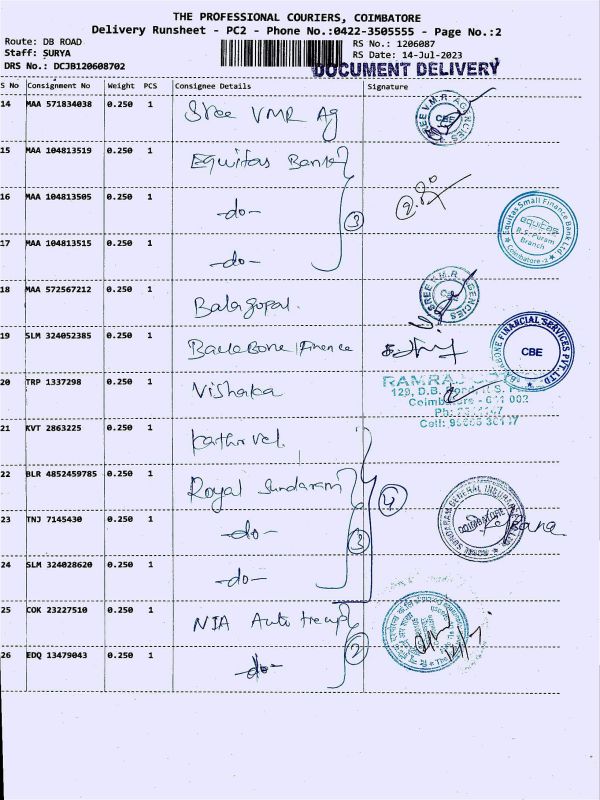 THE PROFESSIONAL COURIERS, COIMBATORE
Delivery Runsheet - PC2 - Phone No.:0422-3505555 - Page No.:2
Route: DB ROAD
Staff: SURYA
DRS No.: DCJB120608702
RS No.: 1206087
RS Date: 14-Jul-2023
DOCUMENT DELIVERY
S No Consignment No Weight PCS Consignee Details Signature
14 MAA 571834038 0.250 1 Sree VMR Ag
SREE V.M.R. AGENCIES CBE
15 MAA 104813519 0.250 1 Equitas Bank
16 MAA 104813505 0.250 1 -do- 3
Equitas Small Finance Bank Ltd
equitas
R.S. Puram
Branch
Coimbatore-2
17 MAA 104813515 0.250 1 -do-
18 MAA 572567212 0.250 1 Balagopal.
SREE V.M.R. AGENCIES
19 SLM 324052385 0.250 1 BackBone Finance
FINANCIAL SERVICES PVT. LTD.
CBE
20 TRP 1337298 0.250 1 Vishaka
129, D.B.
21 KVT 2863225 0.250 1 Kathirvel
22 BLR 4852459785 0.250 1 Royal Sundaram 4
SUNDARAM GENERAL INSURANCE
COIMBATORE
23 TNJ 7145430 0.250 1 -do- 3
24 SLM 324028620 0.250 1 -do-
25 COK 23227510 0.250 1 NIA Auto
26 EDQ 13479043 0.250 1 -do- 2